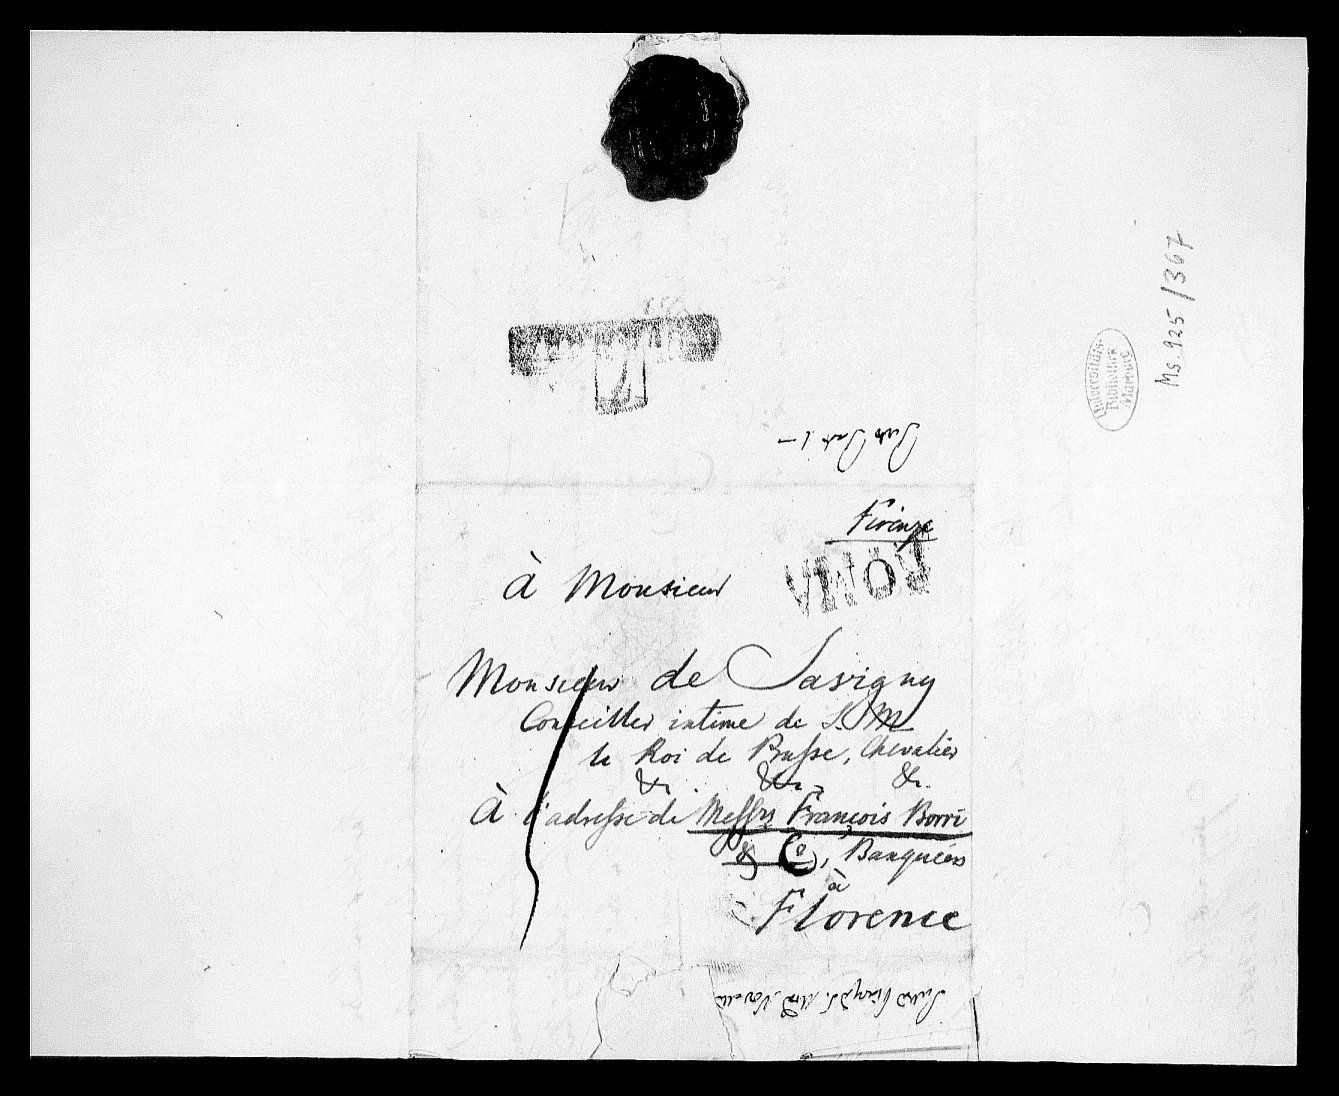 Ms. 925/367
Universitäts-
Bibliothek
Marburg
Firenze
ROMA
à Monsieur
Monsieur de Savigny
Conseiller intime de S. M
le Roi de Prusse, Chevalier
&c. &c. &c.
À l'adresse de Messrs François Borri
& Co, Banquiers
à
Florence